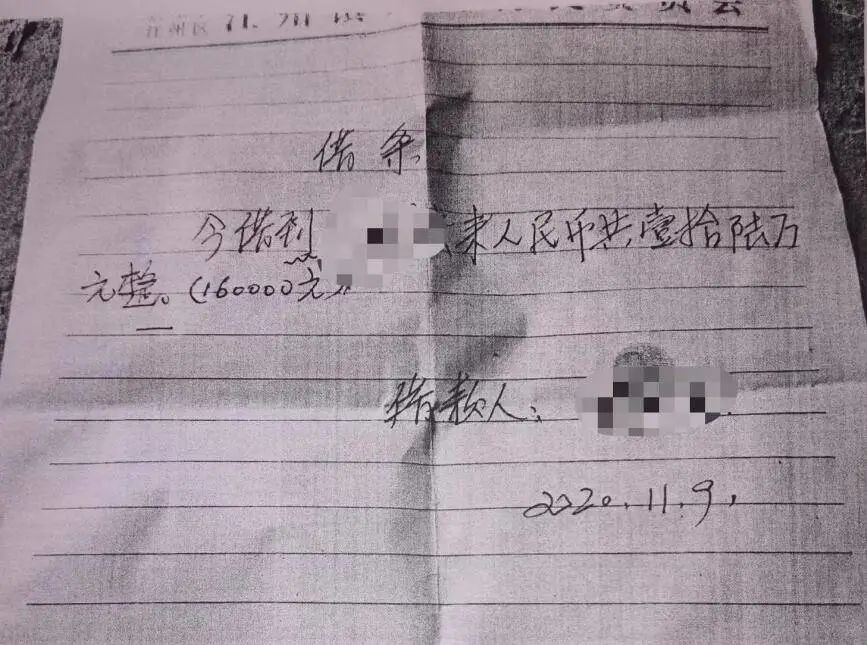 借条
今借到 来人民币共壹拾陆万
元整。(160000元)
借款人:
2020.11.9.